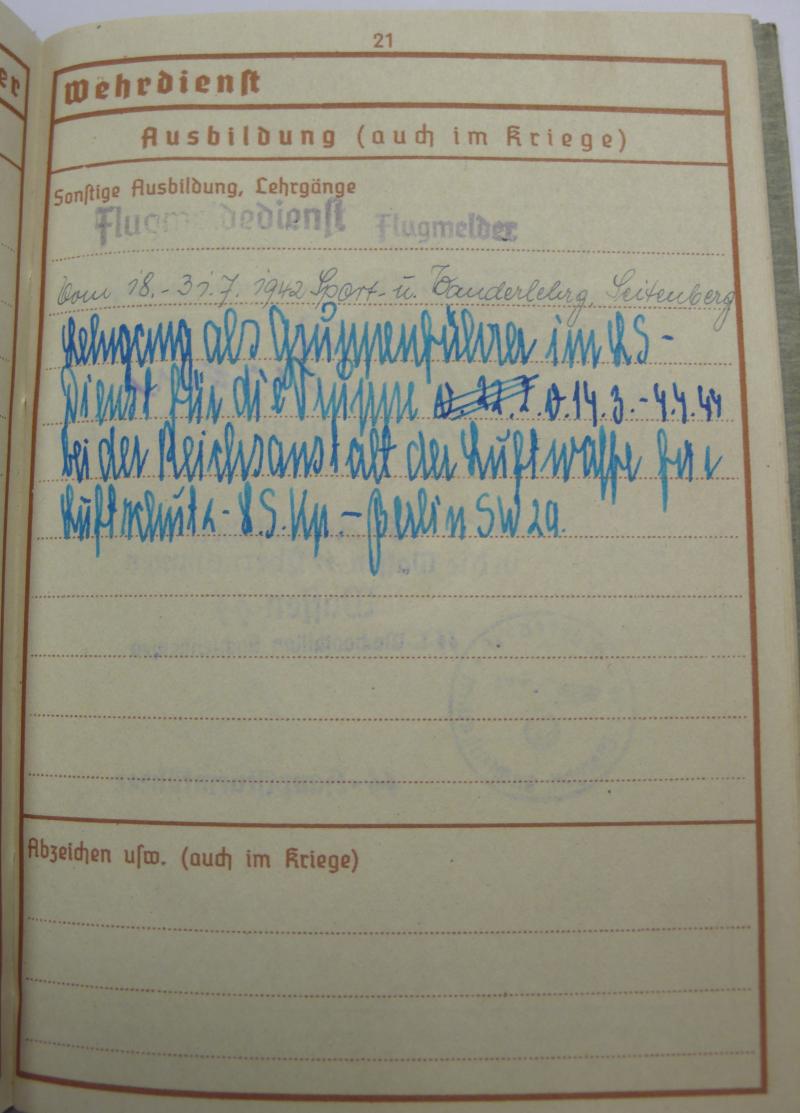 er
21
Wehrdienst
Ausbildung (auch im Kriege)
Sonstige Ausbildung, Lehrgänge
Flugmeldedienst Flugmelder
Vom 18.-31.7.1942 Sport- u. Wanderlehrg. Seitenberg
Lehrgang als Gruppenführer im LS-
Dienst für die Truppe v. 14.3.-4.4.44
bei der Reichsanstalt der Luftwaffe für
Luftschutz - L.S. Kp. - Berlin SW 29.
in die Waffen-SS übernommen
Waffen-SS
SS-Hauptsturmführer
Abzeichen usw. (auch im Kriege)